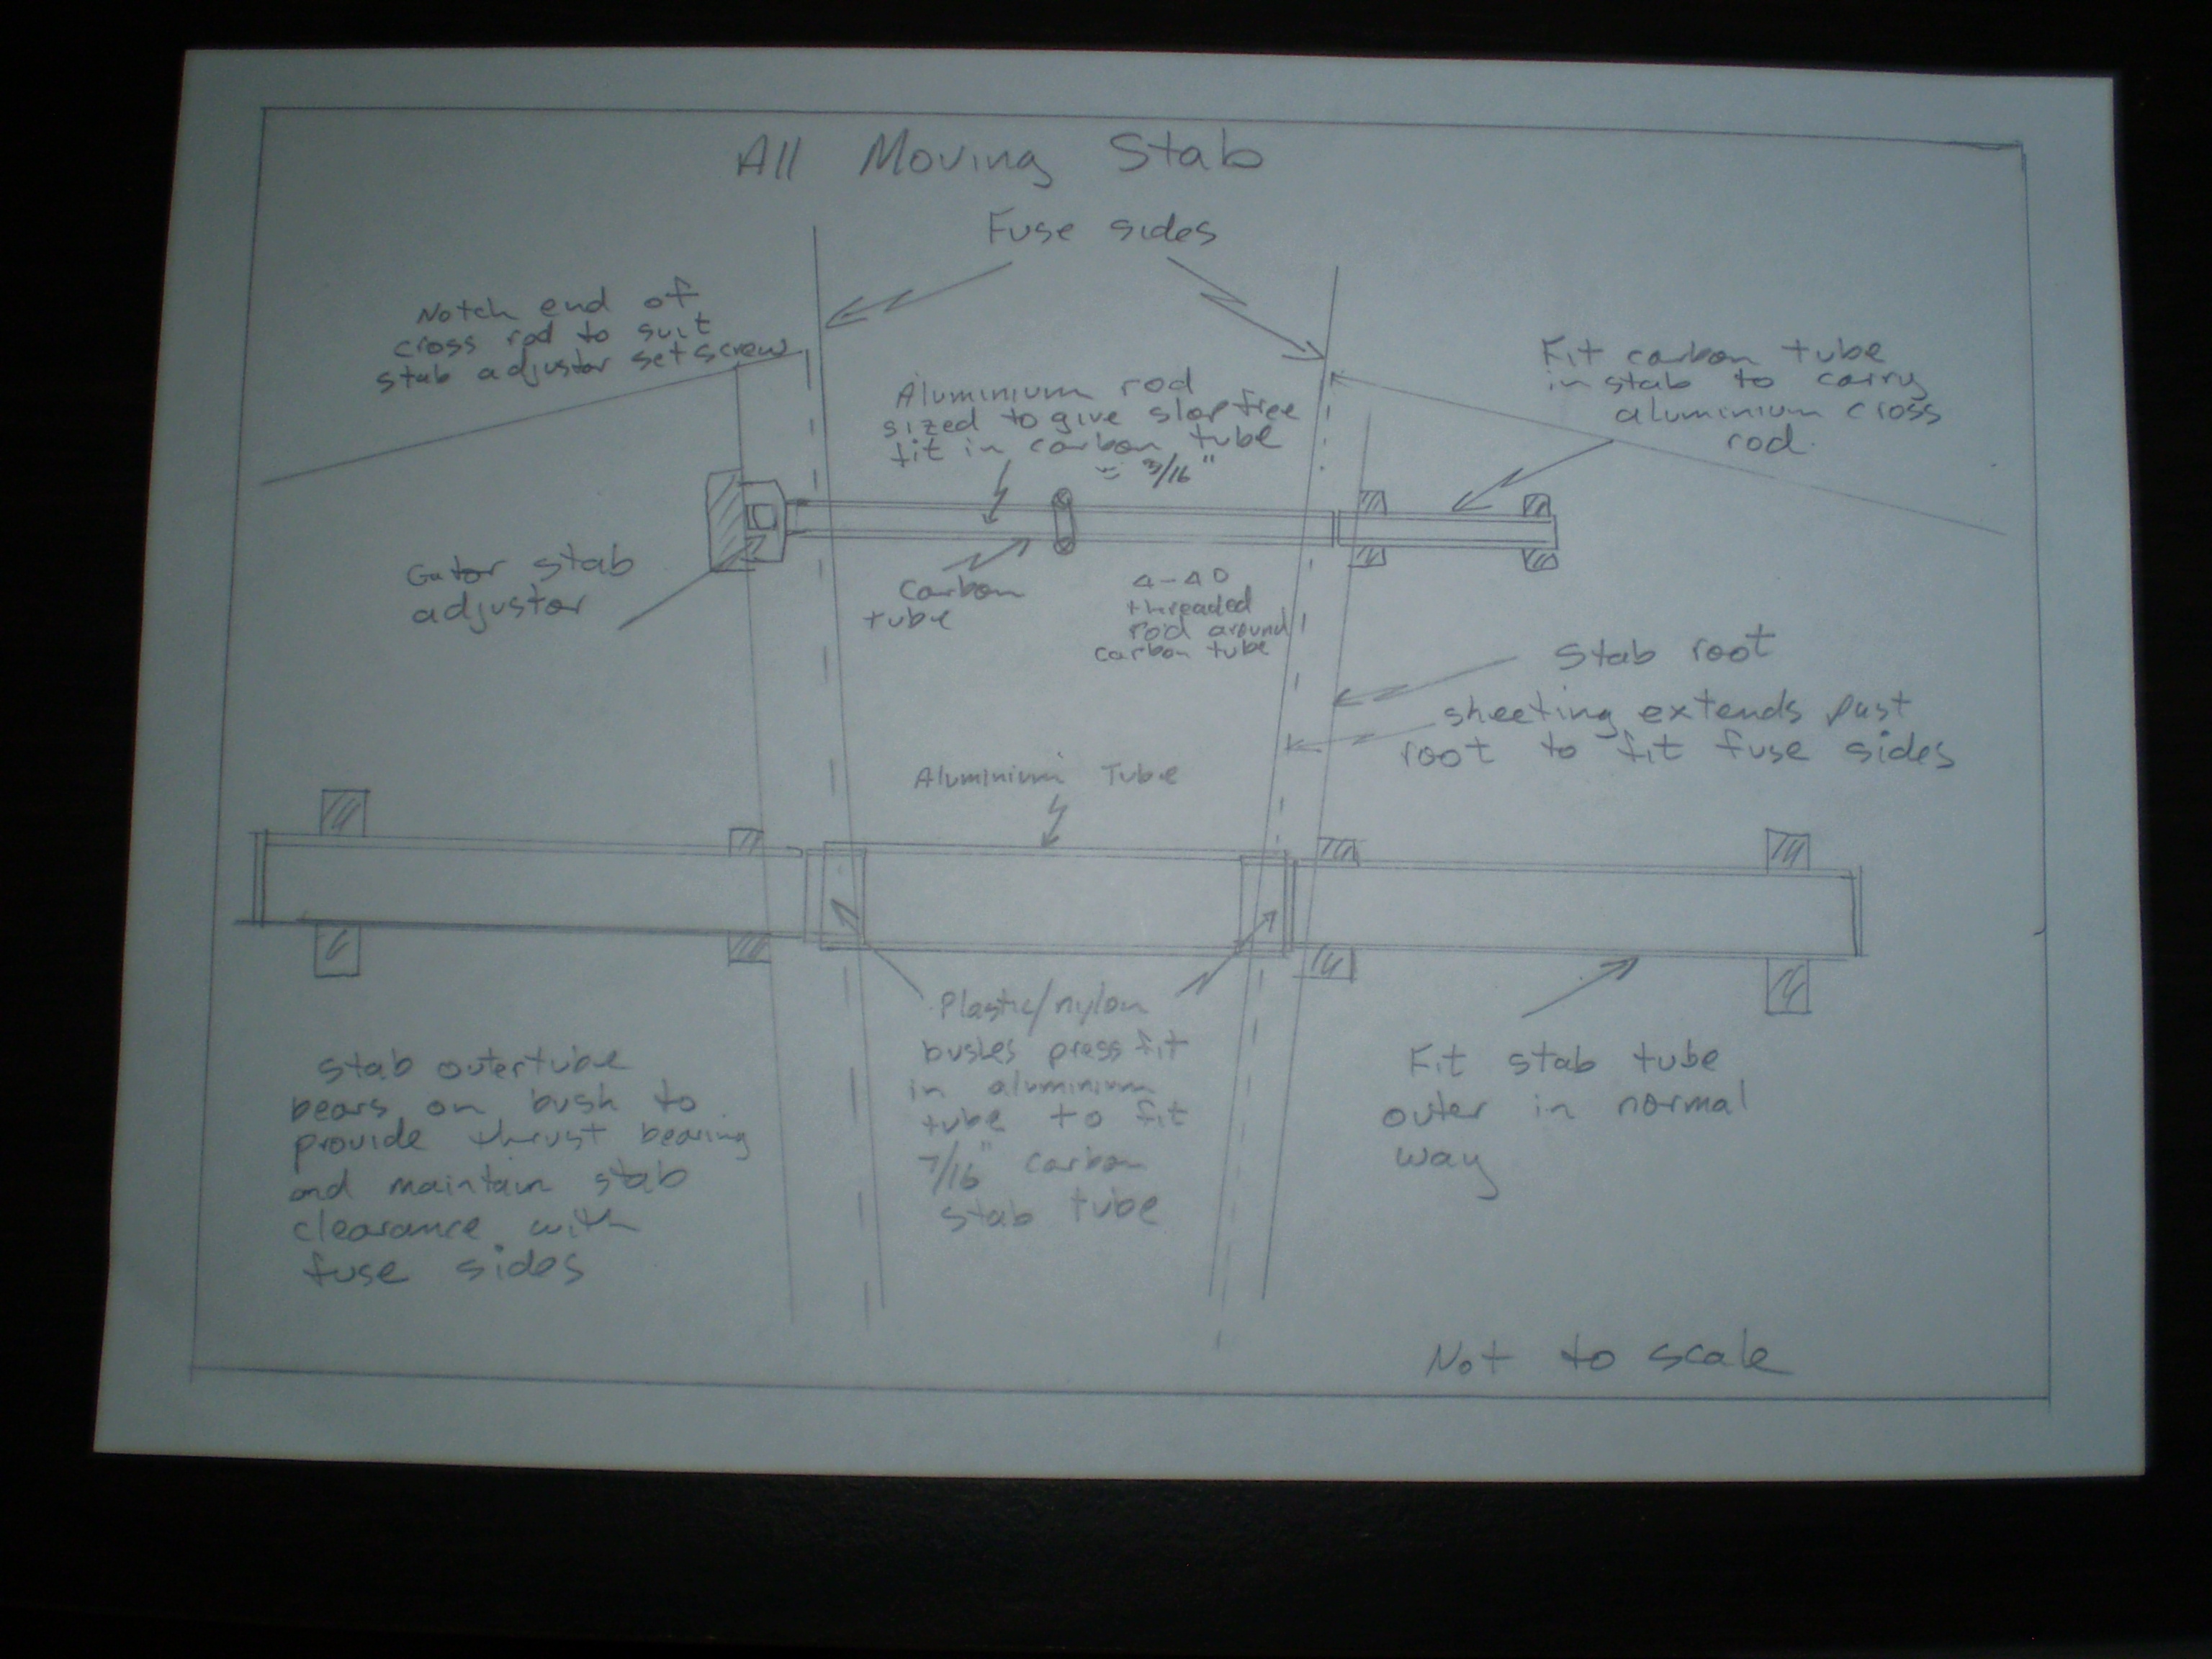 All Moving Stab
Fuse sides
Notch end of
cross rod to suit
stab adjustor set screw
Aluminium rod
sized to give slop free
fit in carbon tube
≈ 3/16"
Fit carbon tube
in stab to carry
aluminium cross
rod.
Gator stab
adjustor
Carbon
tube
4-40
threaded
rod around
carbon tube
Stab root
sheeting extends past
root to fit fuse sides
Aluminium Tube
Plastic/nylon
bushes press fit
in aluminium
tube to fit
7/16" carbon
stab tube
Stab outer tube
bears on bush to
provide thrust bearing
and maintain stab
clearance with
fuse sides
Fit stab tube
outer in normal
way
Not to scale